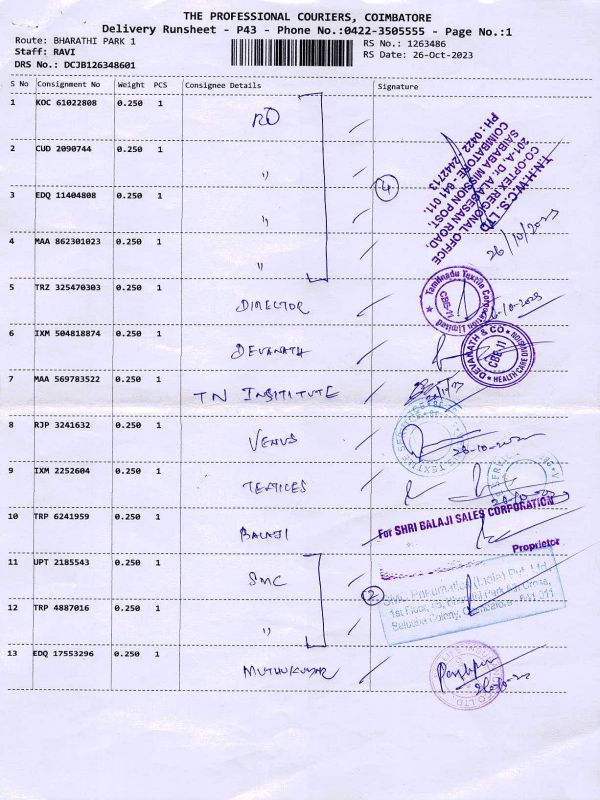 THE PROFESSIONAL COURIERS, COIMBATORE
Delivery Runsheet - P43 - Phone No.:0422-3505555 - Page No.:1
Route: BHARATHI PARK 1
RS No.: 1263486
Staff: RAVI
RS Date: 26-Oct-2023
DRS No.: DCJB126348601
S No Consignment No Weight PCS Consignee Details Signature
1 KOC 61022808 0.250 1 RO
2 CUD 2090744 0.250 1 "
3 EDQ 11404808 0.250 1 "
4 MAA 862301023 0.250 1 "
4
T.N.H.W.C.S. LTD
CO-OPTEX REGIONAL OFFICE
201-A, Dr. ALAGESAN ROAD,
SAIBABA MISSION POST,
COIMBATORE - 641 011.
PH : 0422 - 2442713
26/10/2023
5 TRZ 325470303 0.250 1 DIRECTOR
Tamilnadu Textile Corporation Limited
CBE-11
26-10-2023
6 IXM 504818874 0.250 1 DEVANATH
DEVANATH & CO
CBE-11
HEALTH CARE DIVISION
7 MAA 569783522 0.250 1 TN INSTITUTE
8 RJP 3241632 0.250 1 VENUS
26-10-2023
9 IXM 2252604 0.250 1 TEXTILES
10 TRP 6241959 0.250 1 BALAJI
For SHRI BALAJI SALES CORPORATION
Proprietor
11 UPT 2185543 0.250 1 SMC
12 TRP 4887016 0.250 1 "
2
SMC Pneumatics (India) Pvt. Ltd.
1st Floor,
Saibaba Colony, Coimbatore - 641 011
13 EDQ 17553296 0.250 1 MUTHUKUMAR